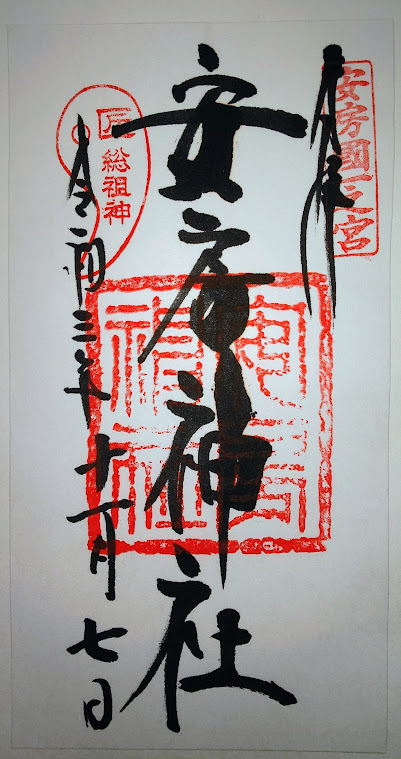 安房國一之宮
奉拝
安房神社
安房
神社
総祖神
令和三年十一月七日